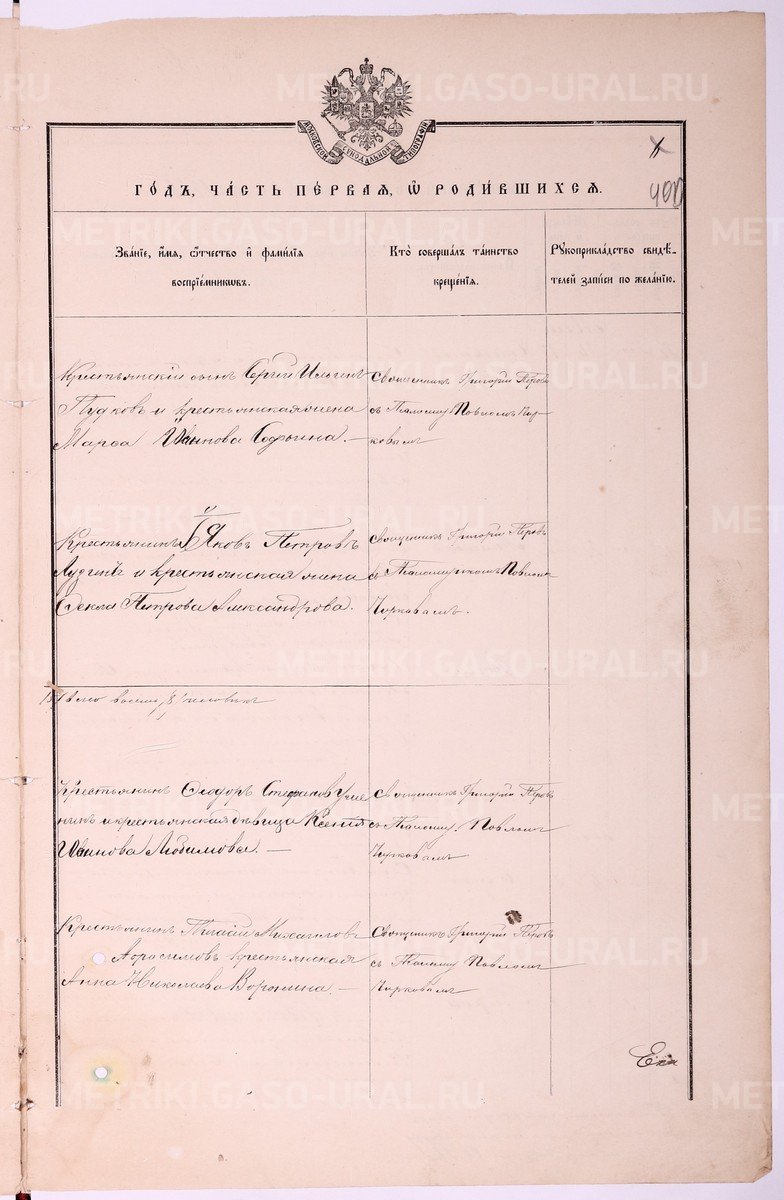 МОСКОВСКОЙ СѴНОДАЛЬНОЙ ТИПОГРАФІИ
ГО́ДЪ, ЧА́СТЬ ПЕ́РВАЯ, Ѡ РОДИ́ВШИХСЯ.
490
Зва́ніе, и́мя, о́тчество и фами́лія
воспріе́мниковъ.
Кто̀ соверша́лъ та́инство
креще́нія.
Рукоприкла́дство свидѣ́-
телей за́писи по жела́нію.
Крестьянскій сынъ Сергій Ильинъ
Пудковъ и крестьянская жена
Марѳа Иванова
Священникъ Григорій Перовъ
съ Псаломщ. Павломъ Чир-
ковымъ
Крестьянинъ Яковъ Петровъ
и крестьянская жена
Ѳекла Петрова Александрова.
Священникъ Григорій Перовъ
съ Псаломщикомъ Павломъ
Чирковымъ.
восемь /8/ человѣкъ
Крестьянинъ Ѳеодоръ Стефановъ
и крестьянская дѣвица Ксенія
Иванова Любимова. —
Священникъ Григорій Перовъ
съ Псаломщ. Павломъ
Чирковымъ
Крестьянинъ Михаиловъ
крестьянская
Анна Николаева Воронина. —
Священникъ Григорій Перовъ
съ Псаломщ. Павломъ
Чирковымъ
Ека
METRIKI.GASO-URAL.RU